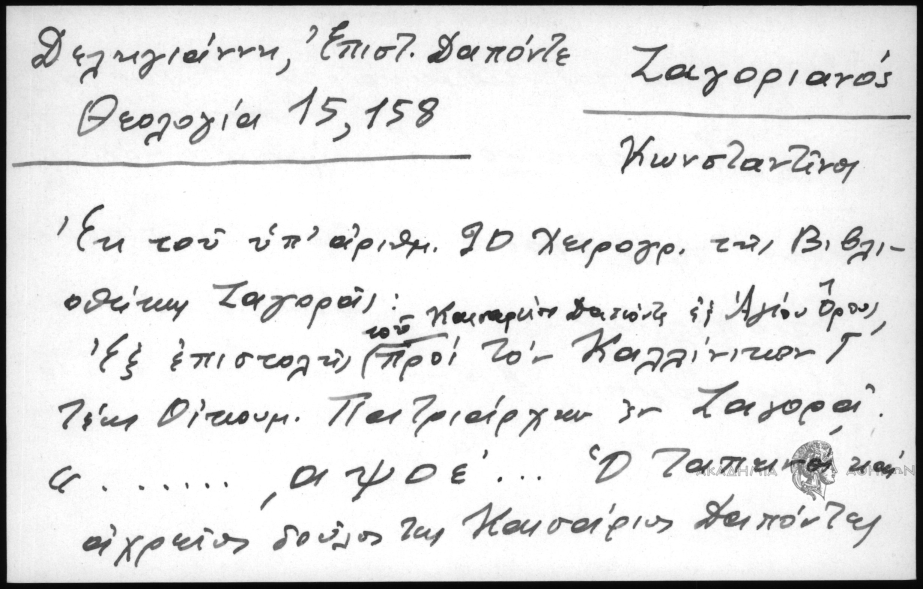 Δεληγιάννη, Ἐπιστ. Δαπόντε
Θεολογία 15, 158
Ζαγοριανός
Κωνσταντῖνος
Ἐκ τοῦ ὑπ' ἀριθμ. 90 Χειρογρ. τῆς Βιβλι-
οθήκης Ζαγορᾶς:
τοῦ Καισαρίου Δαπόντε ἐξ Ἁγίου Ὄρους,
Ἐξ ἐπιστολῆς (πρὸς τὸν Καλλίνικον Γ'
τέως Οἰκουμ. Πατριάρχην ἐν Ζαγορᾷ.
α ....... ,αψοε' ... Ὁ ταπεινὸς καὶ
ἀχρεῖος δοῦλος της Καισάριος Δαπόντες
ΑΚΑΔΗΜΙΑ ΑΘΗΝΩΝ